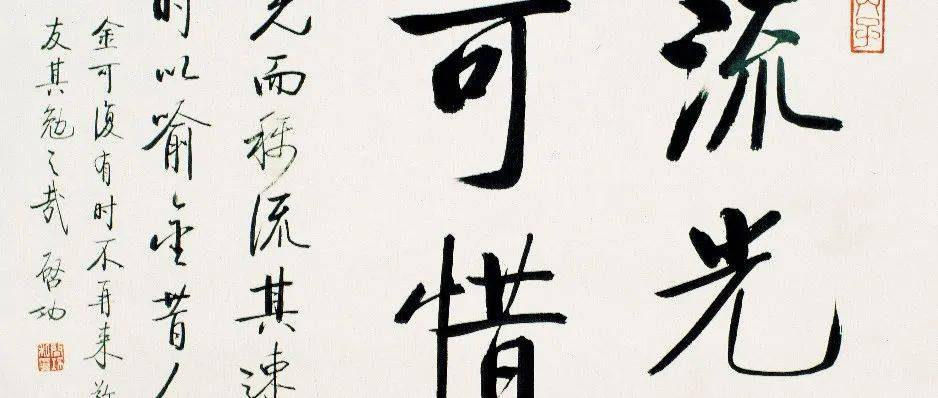 流光
可惜
光而称流其速
时以喻金昔人
金可復有时不再来
友其勉之哉 启功